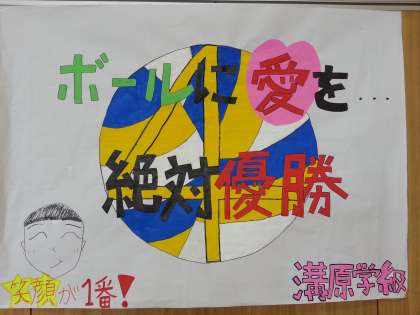 ボールに愛を...
絶対優勝
笑顔が1番!
溝原学級